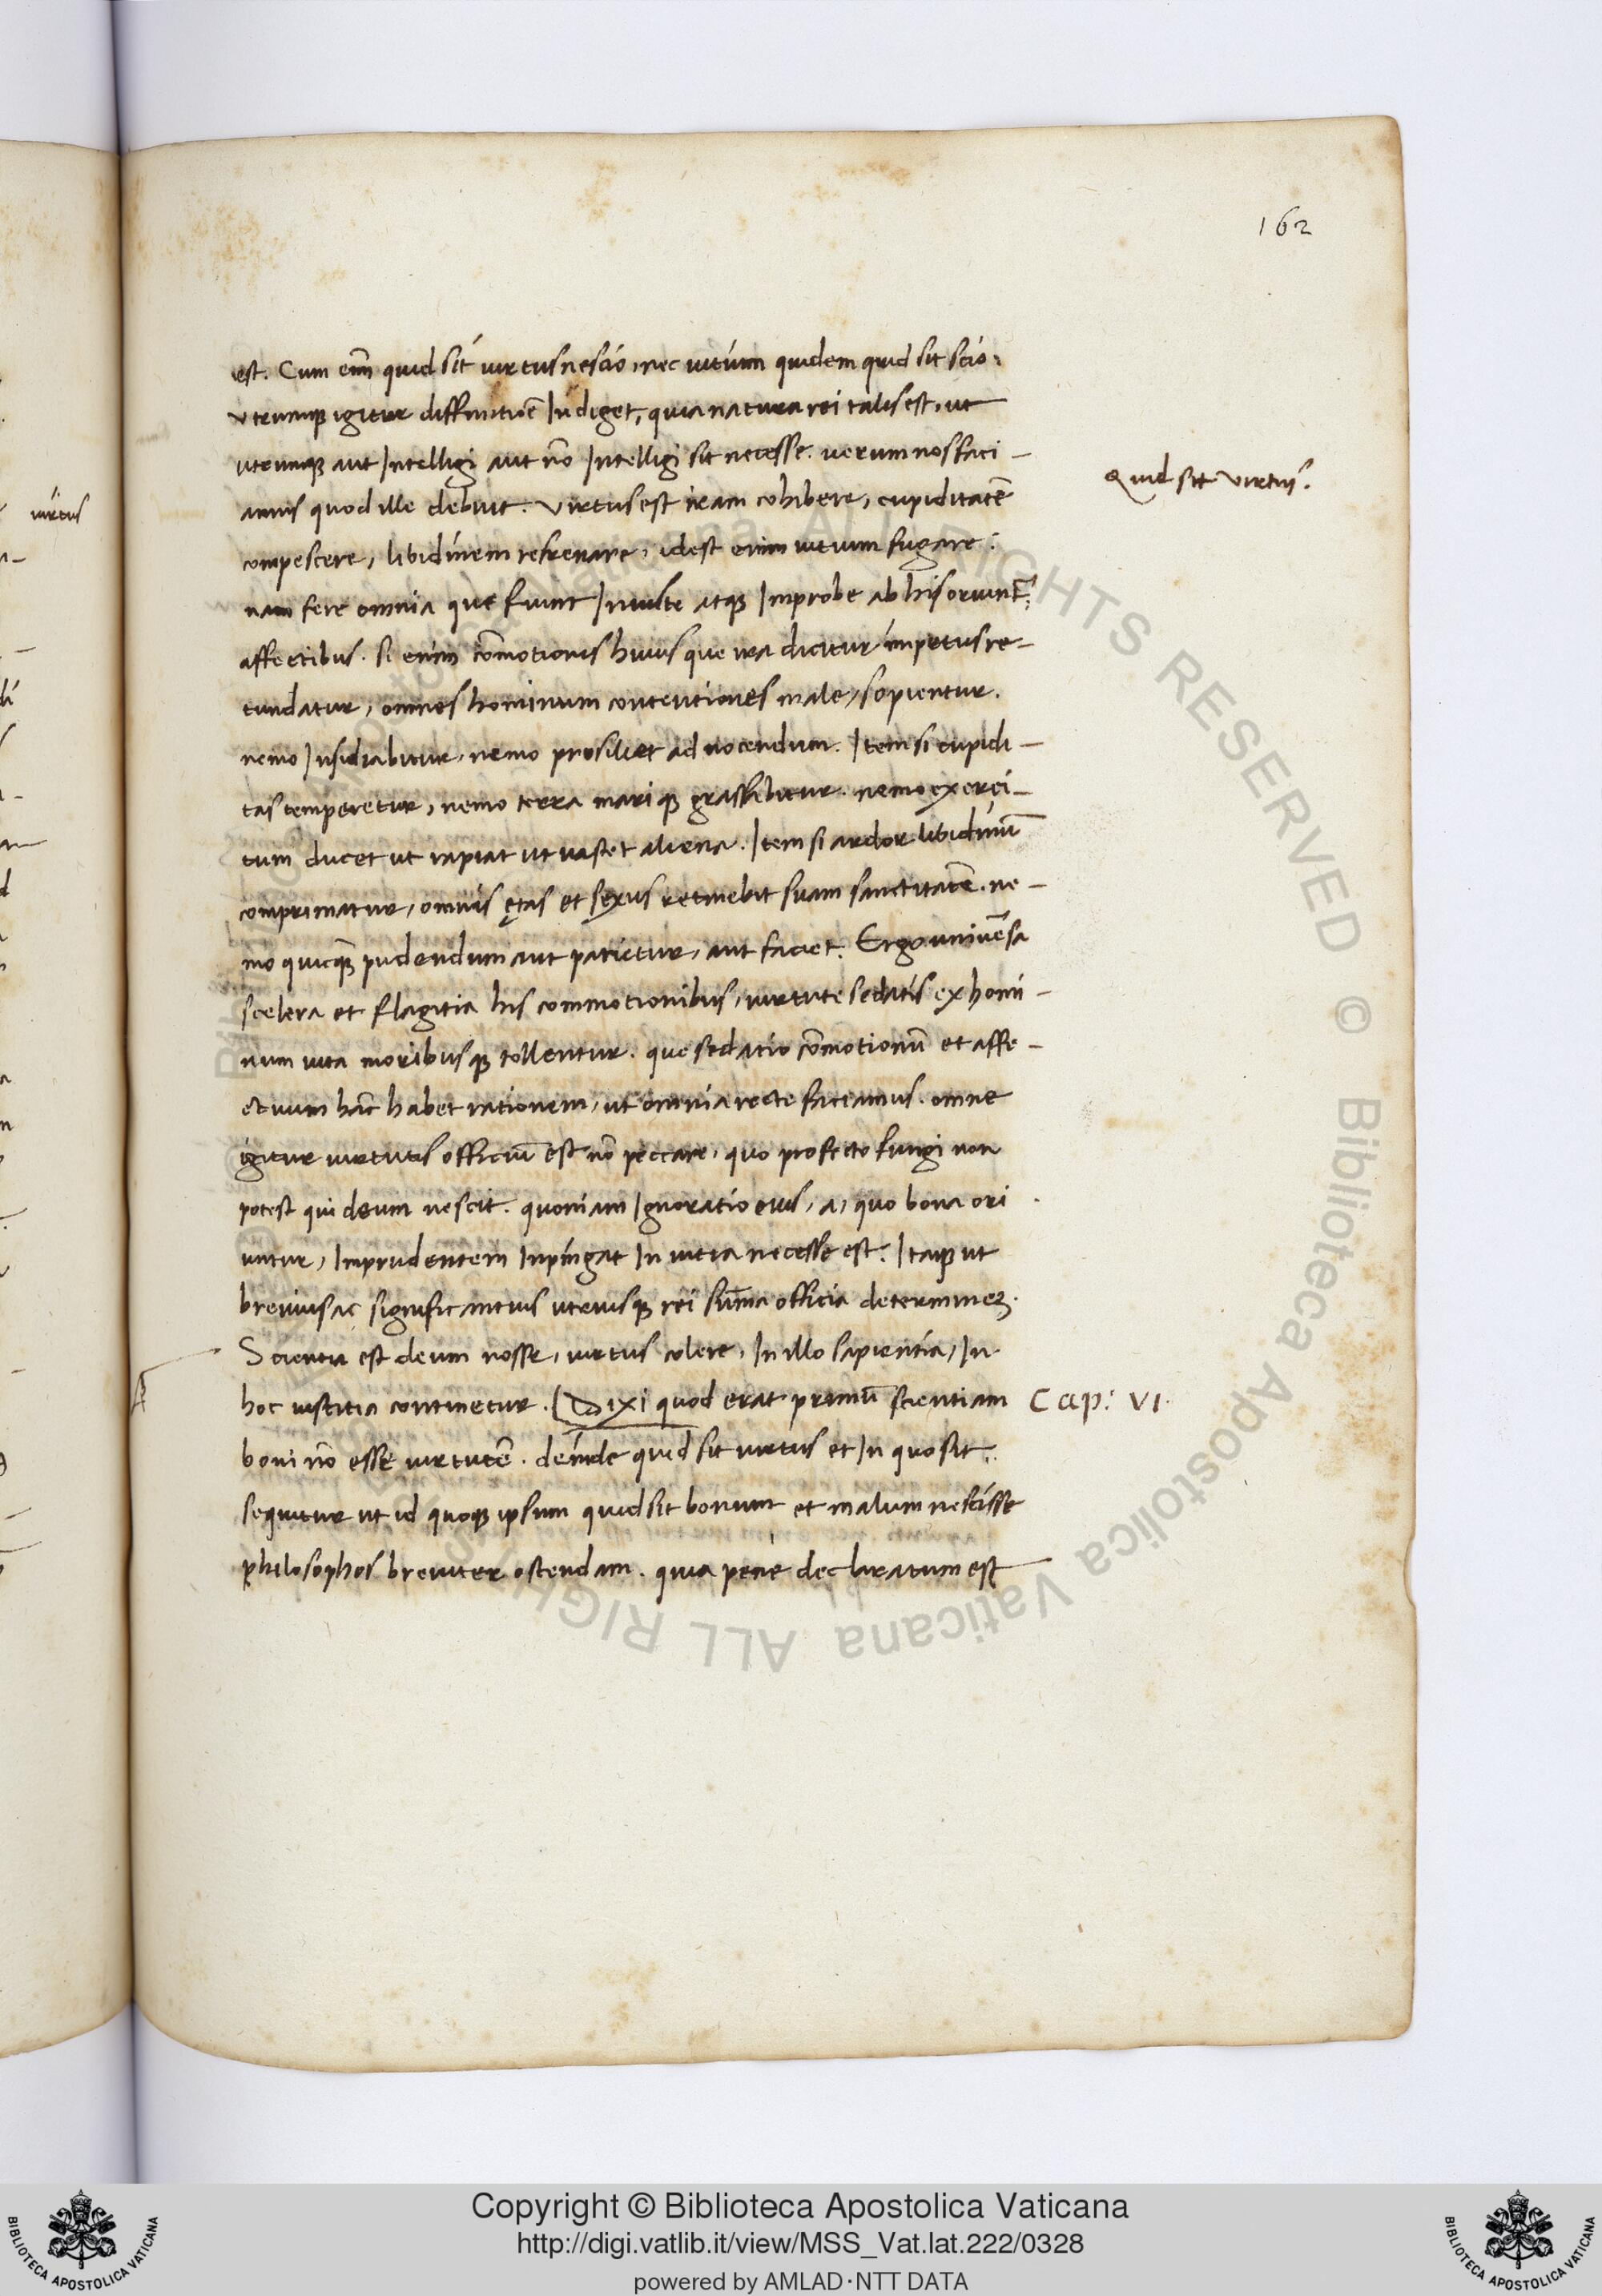 162
est. Cum em̄ quid sit virtus nescio, nec vitium quidem quid sit scio.
Vtrumq; igitur diffinitiōe Indiget, quia natura rei talis est, ut
utrumq; aut Intelligi aut nō Intelligi sit necesse. uerum nos faci-
amus quod ille debuit. Virtus est iram cohibere, cupiditatē
compescere, libidinem refrenare, idest enim uitium fugare.
nam fere omnia que fiunt Iniuste atq; Improbe ab his oriunt̄
affectibus. Si enim cōmotionis huius que ira dicitur impetus re-
tundatur, omnes hominum contentiones male, sopientur.
nemo Insidiabitur, nemo prosiliet ad nocendum. Item si cupidi-
tas temperetur, nemo terra mariq; grassabitur. nemo exerci-
tum ducet ut rapiat ut uastet aliena. Item si ardor libidinū
comprimatur, omnis ętas et sexus retinebit suam sanctitatē. ne-
mo quicq̄ pudendum aut patietur, aut faciet. Ergo uniūsa
scelera et flagitia his commotionibus, uirtute sedatis ex homi-
num uita moribusq; tollentur. que sedatio cōmotionū et affe-
ctuum hāc habet rationem, ut omnia recte faciamus. omne
igitur uirtutis officiū est nō peccare, quo profecto fungi non
potest qui deum nescit. quoniam Ignoratio eius, a, quo bona ori
untur, Imprudentem Inpingat In uitia necesse est. Itaq; ut
breuius ac significantius utriusq; rei sūma officia determinez.
Scientia est deum nosse, uirtus colere, In illo sapientia, In
hoc iustitia continetur. Dixi quod erat primū scientiam
boni nō esse uirtutē. deinde quid sit uirtus et In quo sit.
sequitur ut id quoq; ipsum quid sit bonum et malum nescisse
philosophos breuiter ostendam. quia pene declaratum est
Quid sit Virtus.
Cap: VI.
uirtus
Copyright © Biblioteca Apostolica Vaticana
http://digi.vatlib.it/view/MSS_Vat.lat.222/0328
powered by AMLAD·NTT DATA
BIBLIOTECA APOSTOLICA VATICANA
BIBLIOTECA APOSTOLICA VATICANA